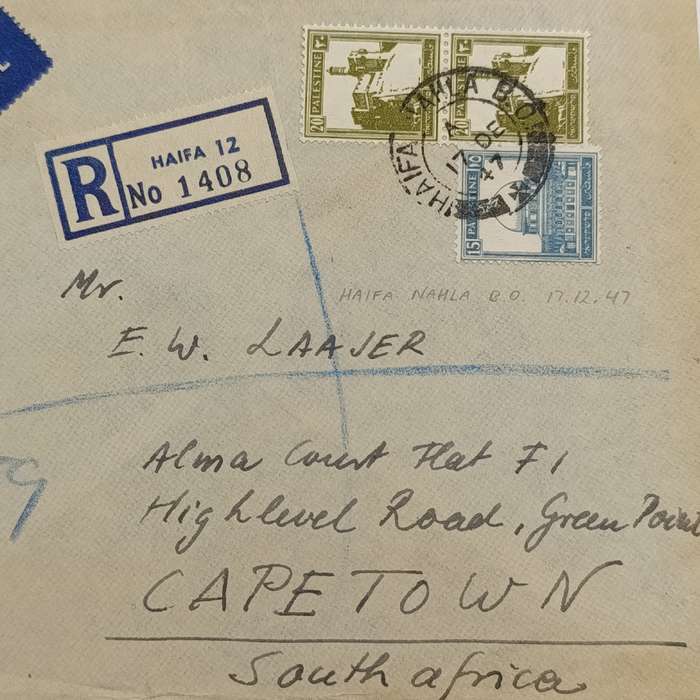 20 PALESTINE ٢٠
PALESTINE
HAIFA NAHLA B.O.
A
17 DE
47
15 PALESTINE
R HAIFA 12
No 1408
Mr.
HAIFA NAHLA B.O. 17.12.47
E. W. LAAJER
Alma Court Flat F1
Highlevel Road, Green Point
CAPETOWN
South africa